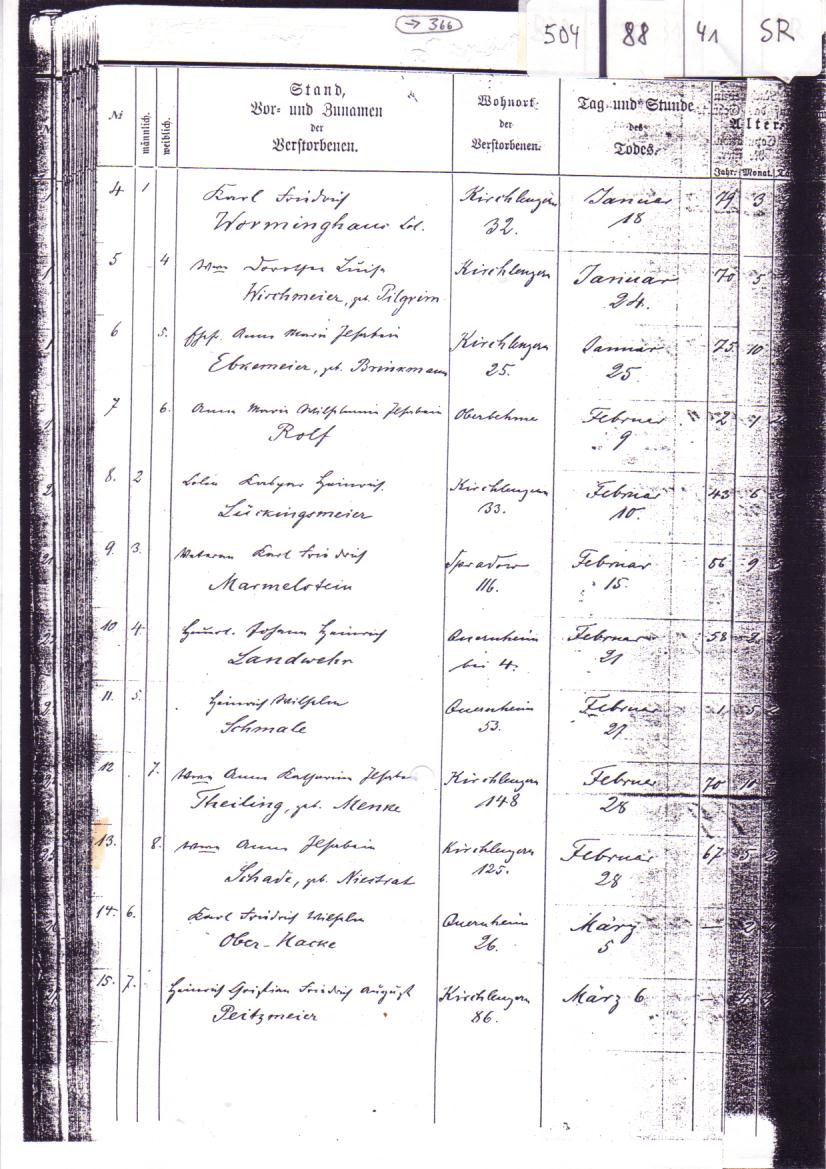 → 366
504 88 41 SR
Nr männlich. weiblich. Stand, Vor= und Zunamen der Verstorbenen. Wohnort der Verstorbenen. Tag und Stunde des Todes. Alter.
Jahr. Monat.
4 1 Karl Friedrich Kirchlengern Januar 79 3
Worminghaus Col. 32. 18
5 4 Wwe Dorothee Luise Kirchlengern Januar 70 5
Wirchmeier, geb. Pilgrim 24.
6 5. Ehefr. Anna Marie Ilsabein Kirchlengern Januar 75. 10
Ebkemeier, geb. Brinkmann 25. 25
7 6. Anna Marie Wilhelmine Ilsabein Oberbehme Februar 2 1
Rolf 9
8. 2 Kaspar Heinrich Kirchlengern Februar 43 6
Lückingsmeier 33. 10.
9. 3. Veteran Karl Friedrich Spradow Februar 56 9
Marmelstein 116. 15.
10 4. Heuerl. Johann Heinrich Quernheim Februar 58 2
Landwehr bei 4. 21
11. 5. Heinrich Wilhelm Quernheim Februar 1 5
Schmale 53. 27
12 7. Wwe Anna Katharine Kirchlengern Februar 70 10
Theiling, geb. Menke 148 28
13. 8. Wwe Anna Ilsabein Kirchlengern Februar 67 5
Schade, geb. Nierstrat 125. 28
14. 6. Karl Friedrich Wilhelm Quernheim März — 2
Ober-Hacke 26. 5
15. 7. Heinrich Christian Friedrich August Kirchlengern März 6 — 4
Peitzmeier 86.